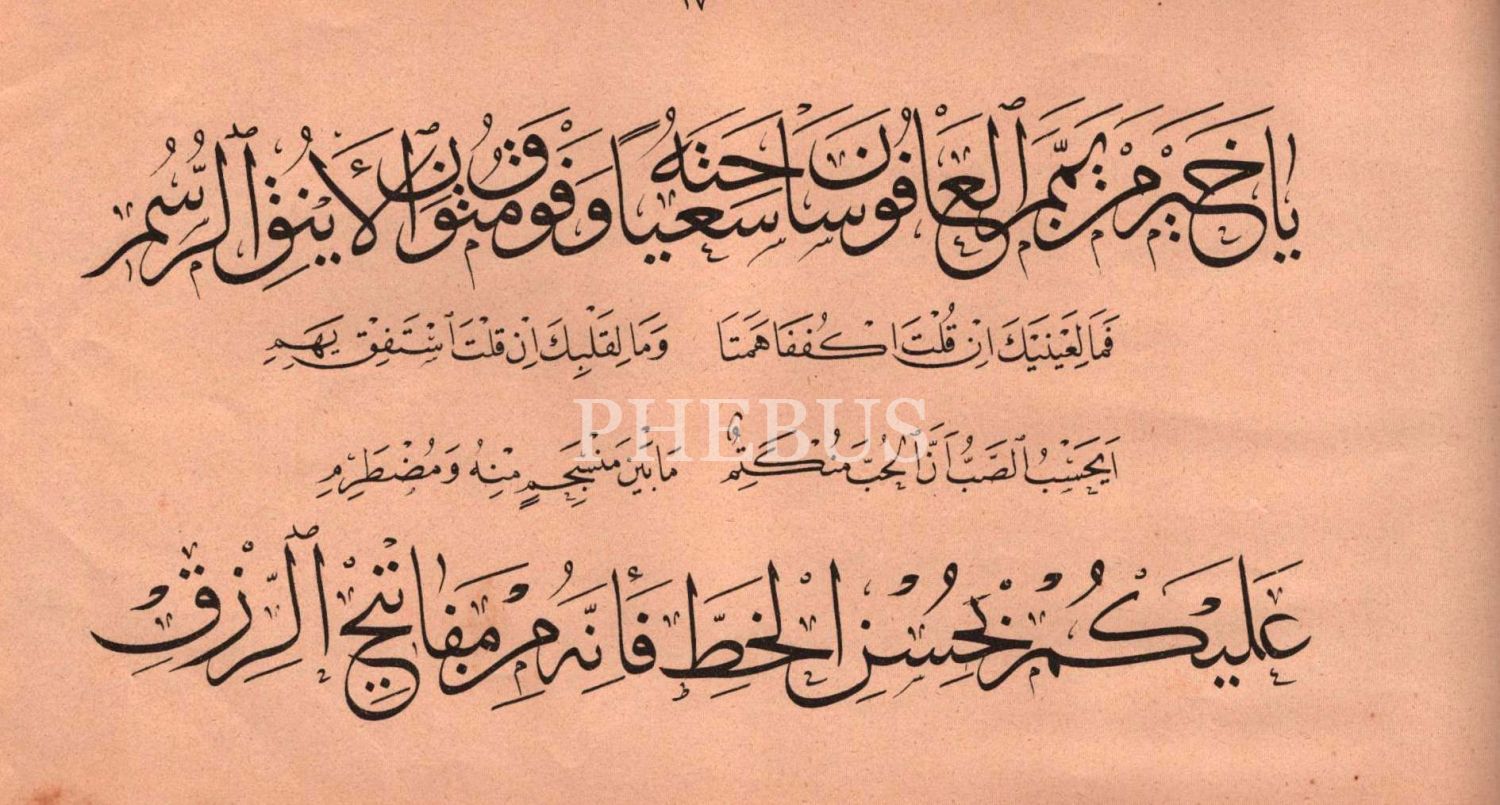 ١٧
يَا خَيْرَ مَنْ يَمَّمَ ٱلْعَافُونَ سَاحَتَهُ سَعْيًا وَفَوْقَ مُتُونِ ٱلْأَيْنُقِ ٱلرُّسُمِ
فَمَا لِعَيْنَيْكَ اِنْ قُلْتَ ٱكْفُفَا هَمَتَا وَمَا لِقَلْبِكَ اِنْ قُلْتَ ٱسْتَفِقْ يَهِمِ
اَيَحْسَبُ ٱلصَّبُّ اَنَّ ٱلْحُبَّ مُنْكَتِمٌ مَا بَيْنَ مُنْسَجِمٍ مِنْهُ وَمُضْطَرِمِ
PHEBUS
عَلَيْكُمْ بِحُسْنِ الْخَطِّ فَأِنَّهُ مِنْ مَفَاتِيحِ ٱلرِّزْقِ